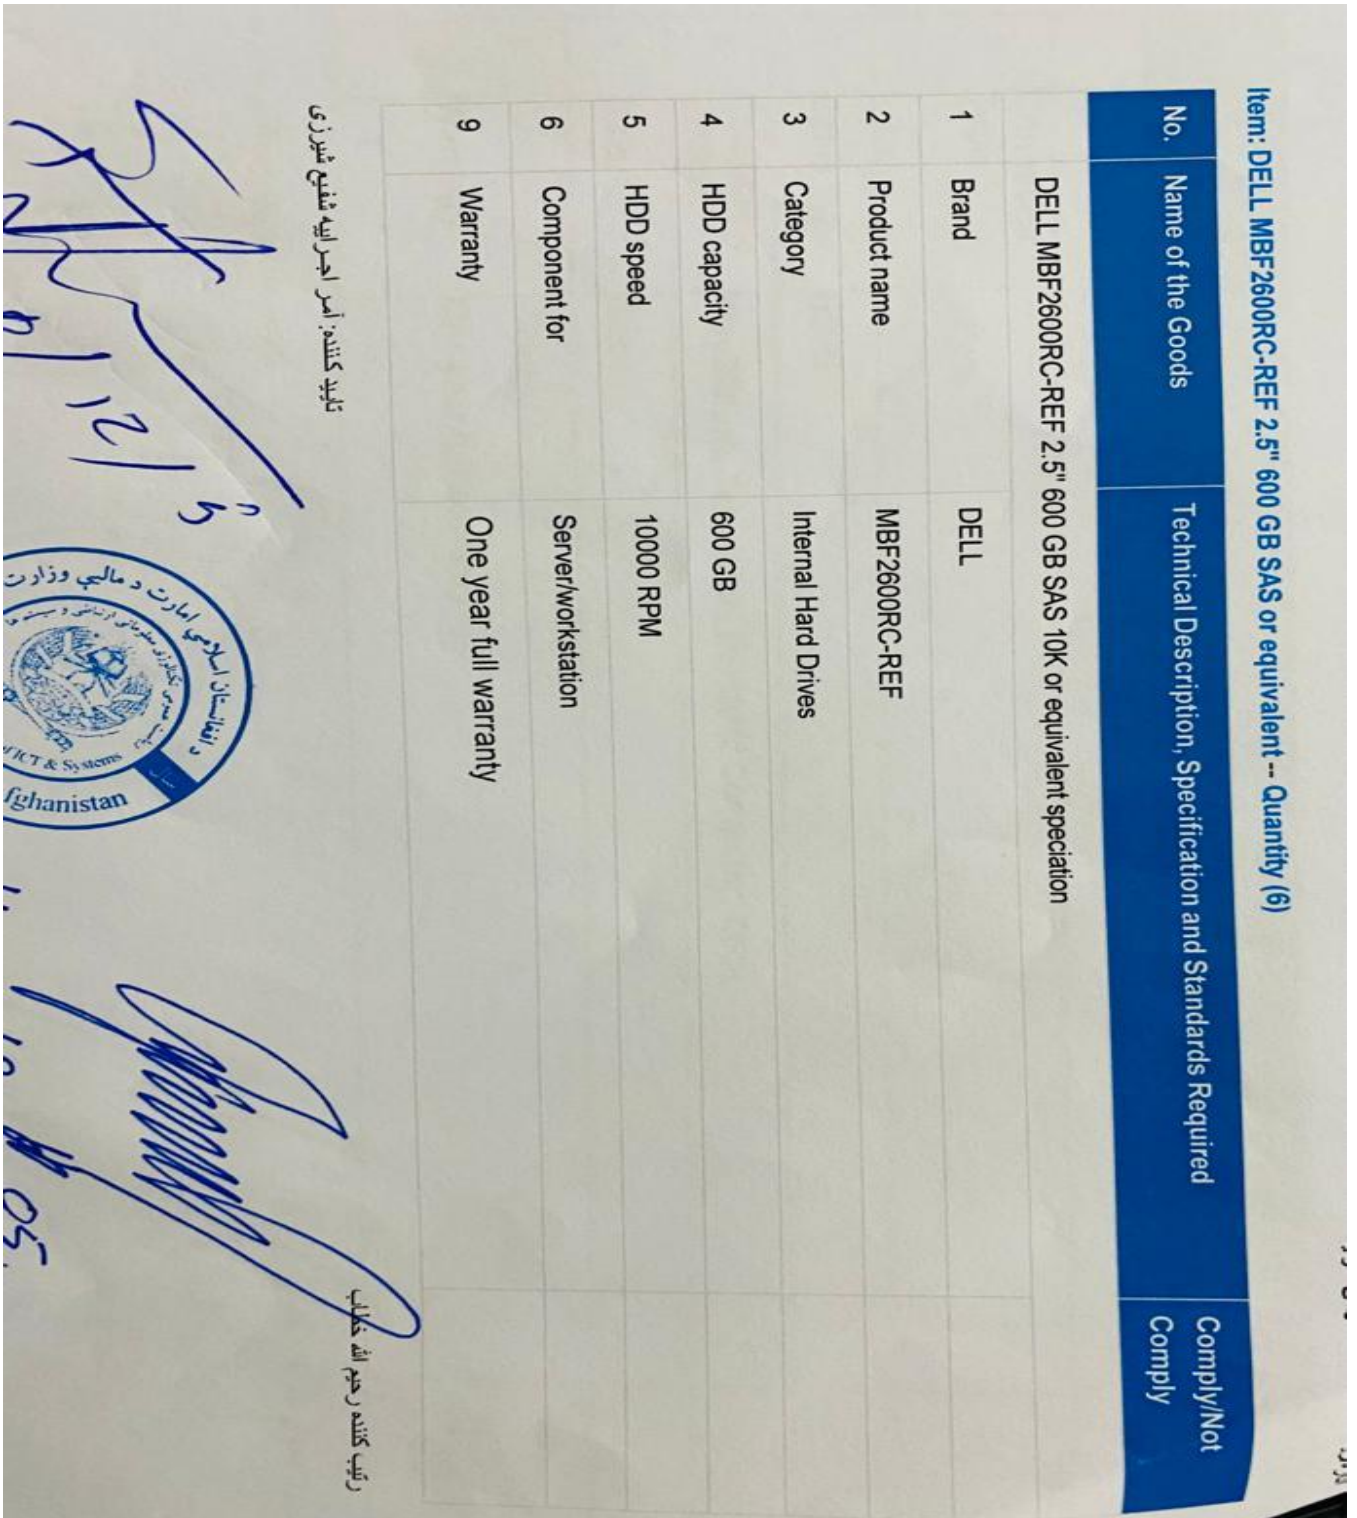 Item: DELL MBF2600RC-REF 2.5" 600 GB SAS or equivalent -- Quantity (6)
No. Name of the Goods Technical Description, Specification and Standards Required Comply/Not Comply
DELL MBF2600RC-REF 2.5" 600 GB SAS 10K or equivalent speciation
1 Brand DELL
2 Product name MBF2600RC-REF
3 Category Internal Hard Drives
4 HDD capacity 600 GB
5 HDD speed 10000 RPM
6 Component for Server/workstation
9 Warranty One year full warranty
رتیب کننده رحیم الله خطاب
تایید کننده: آمر اجراییه شفیع شیرزی
د افغانستان اسلامي امارت د مالیې وزارت
ICT & Systems
fghanistan